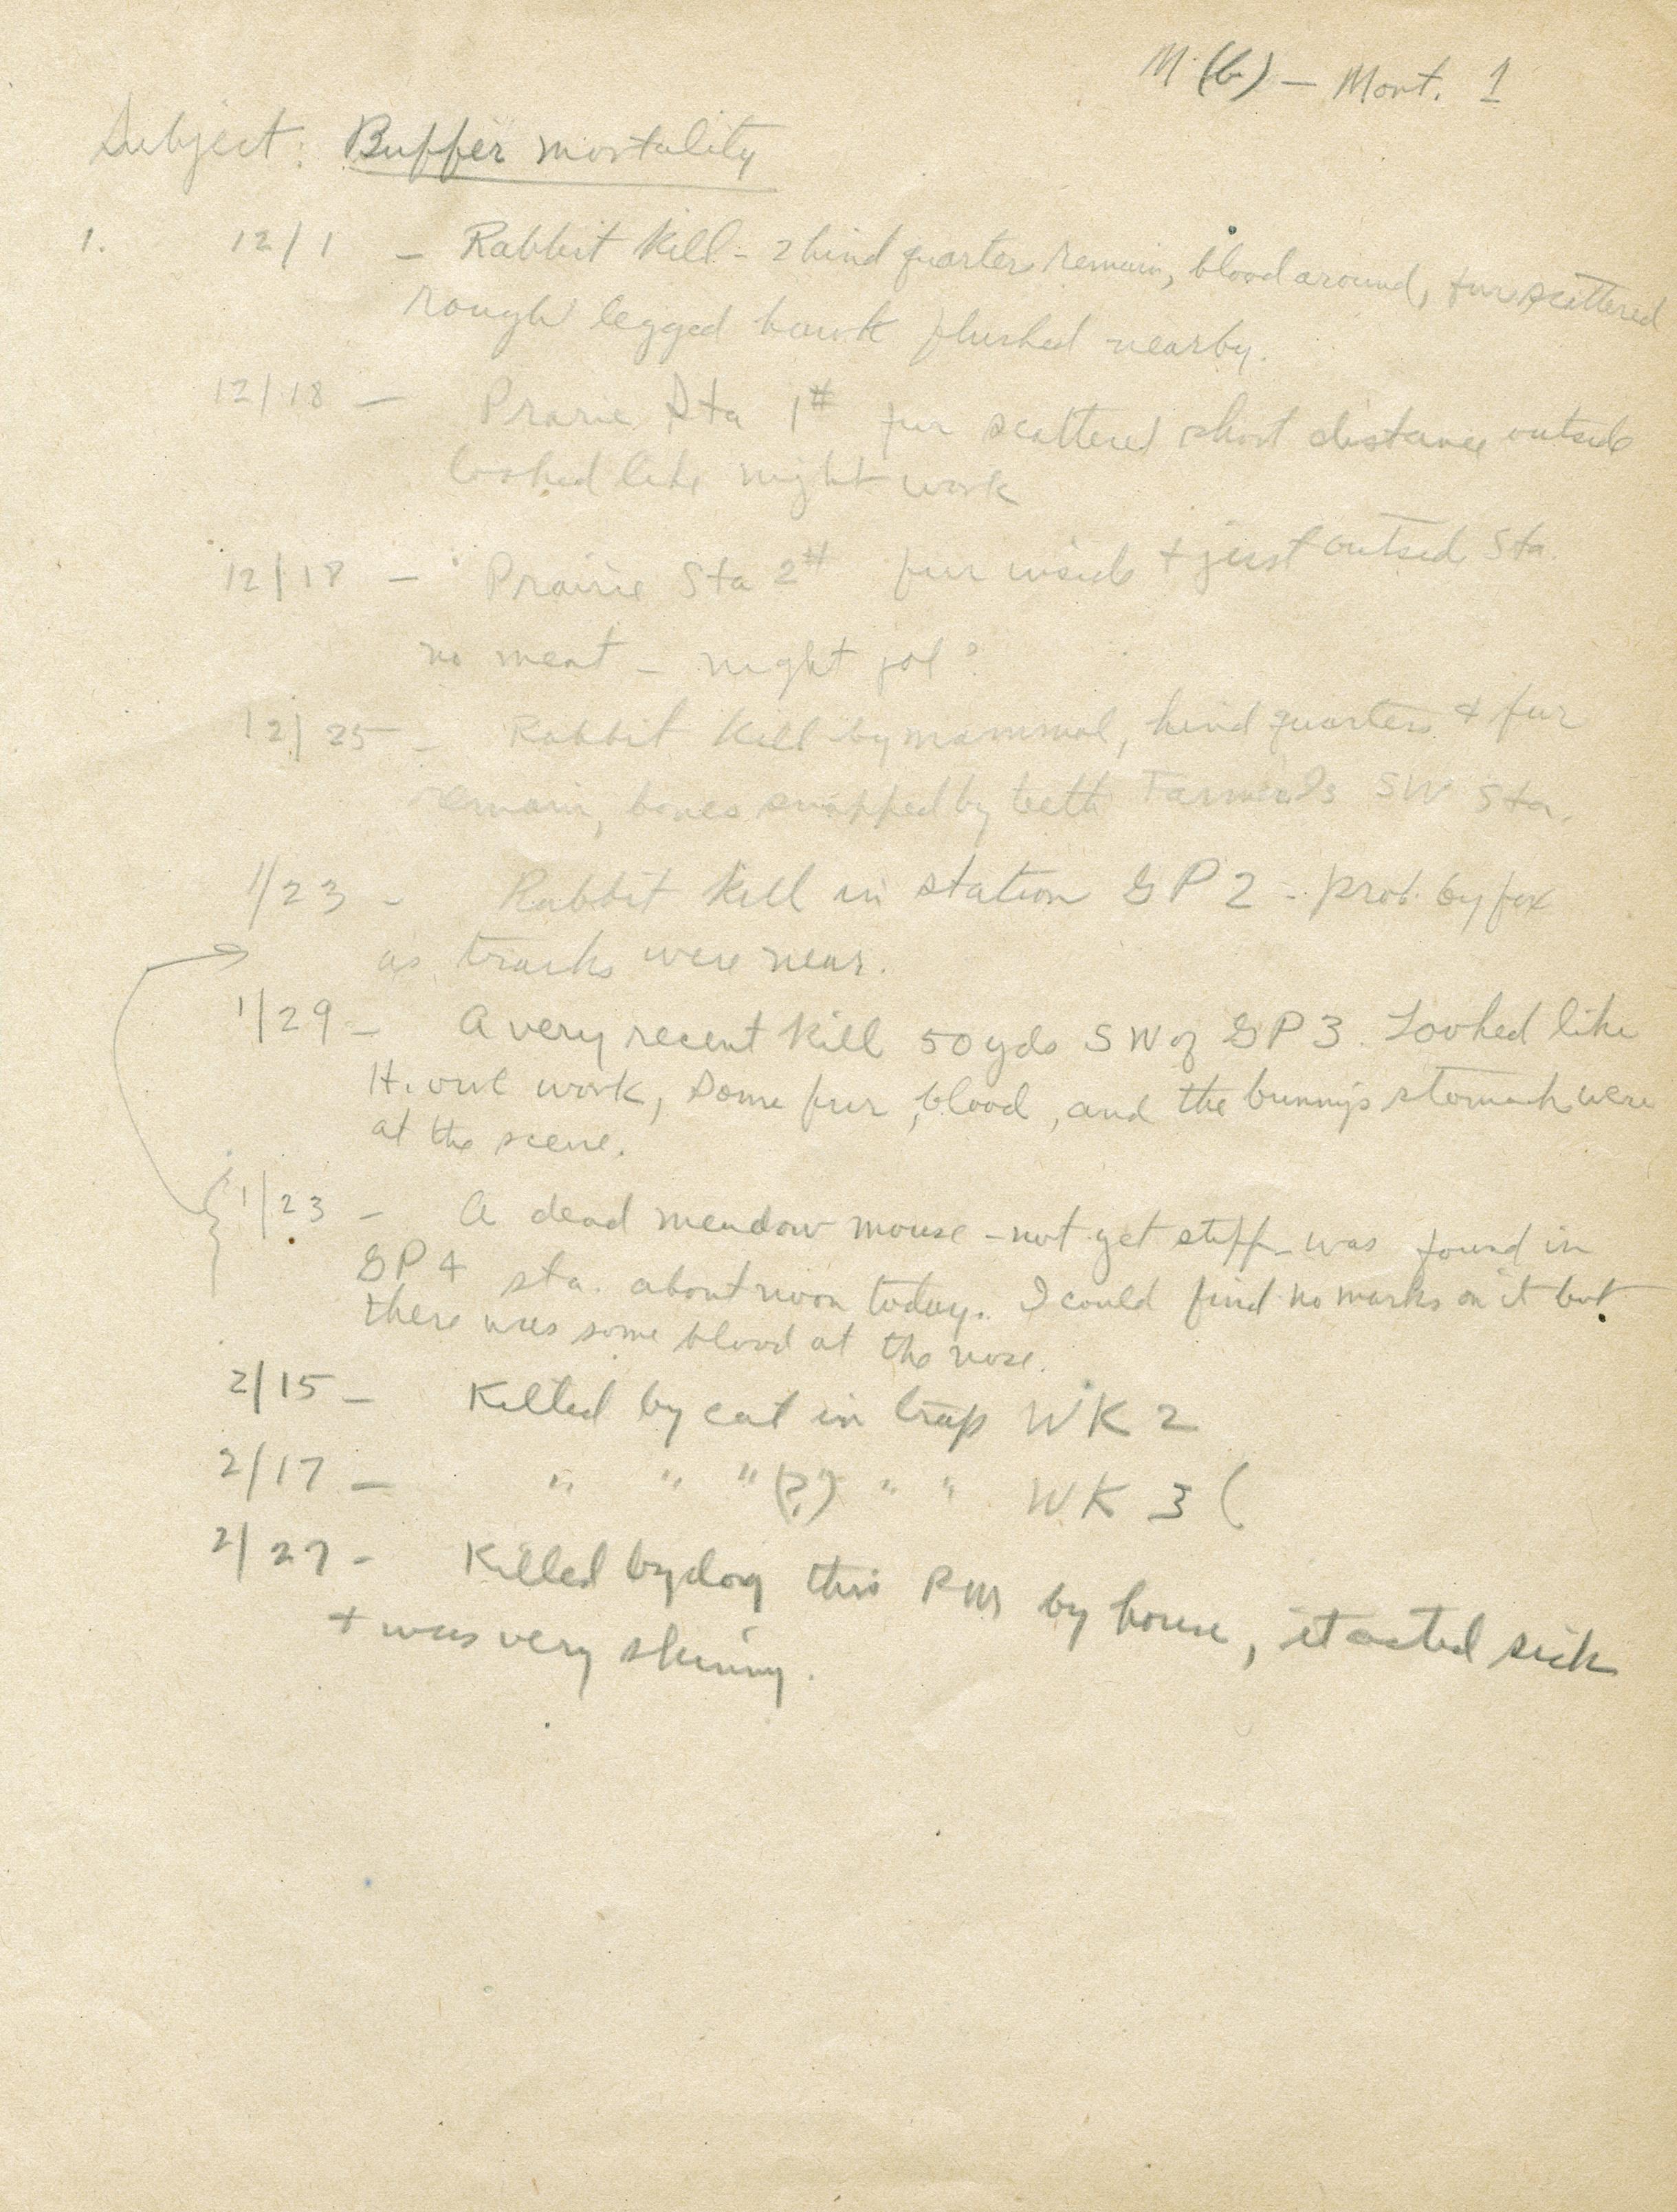 M (b) — Mort. 1
Subject: Buffer mortality
1. 12/1 — Rabbit kill - 2 hind quarters remain, blood around, fur scattered
rough legged hawk flushed nearby.
12/18 — Prarie Sta 1# fur scattered short distance outside
looked like night work
12/18 — Prairie Sta 2# fur inside + just outside Sta.
no meat — night job?
12/25 — Rabbit kill by mammal, hind quarters + fur
remain, bones snapped by teeth SW Sta.
1/23 - Rabbit kill in station GP 2 - prob. by fox
as tracks were near.
1/29 — A very recent kill 50 yds SW of GP 3. Looked like
H. owl work, some fur, blood, and the bunny's stomach were
at the scene.
1/23 - A dead meadow mouse - not yet stiff - was found in
GP 4 sta. about noon today. I could find no marks on it but
there was some blood at the nose.
2/15 — Killed by cat in trap WK 2
2/17 — " " " (?) " " WK 3 (
2/27 - Killed by dog this PM by house, it acted sick
+ was very skinny.